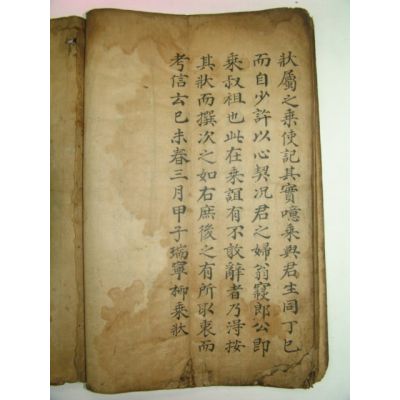 狀屬之秉使記其實噫秉與君生同丁巳
而自少許以心契况君之婦翁寢郎公卽
秉叔祖也此在秉誼有不敢辭者乃淂按
其狀而撰次之如右庶後之有所取衷而
考信云巳未春三月甲子瑞寧柳秉狀